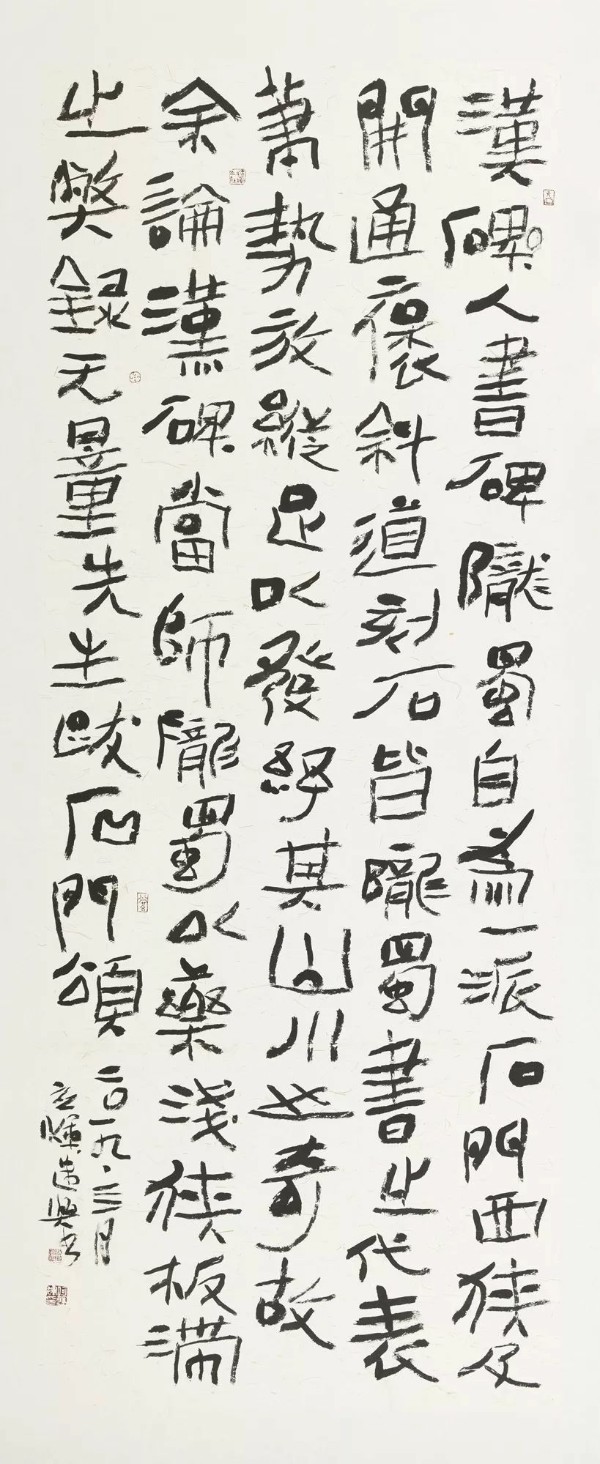 漢碑人書碑隴蜀自為一派石門西狹及
開通褒斜道刻石皆隴蜀書之代表
勢放縱足以發紓其山川之奇故
余論漢碑當師隴蜀以藥淺狹板滿
之獘録无量先生跋石門頌
二〇一九.三月